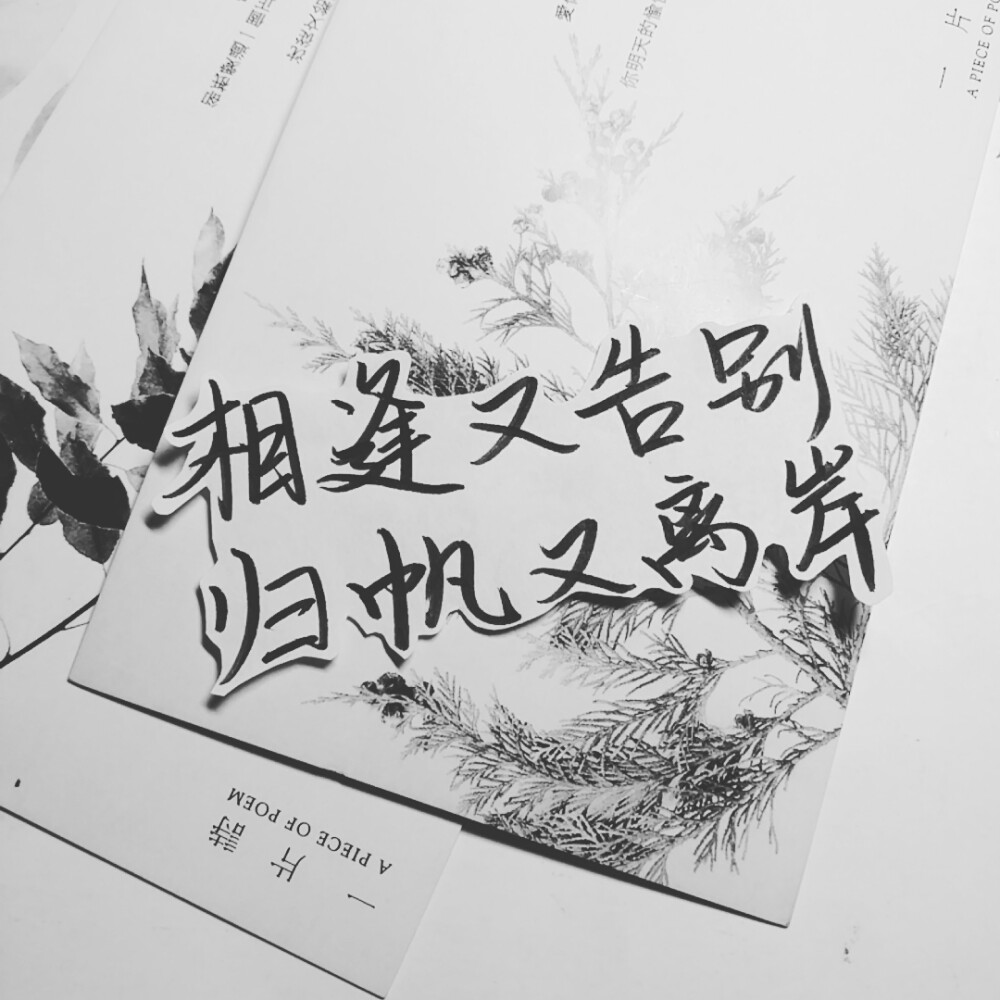 相逢又告别
归帆又离岸
你明天的
一片
A PIECE OF PO
一片詩
A PIECE OF POEM